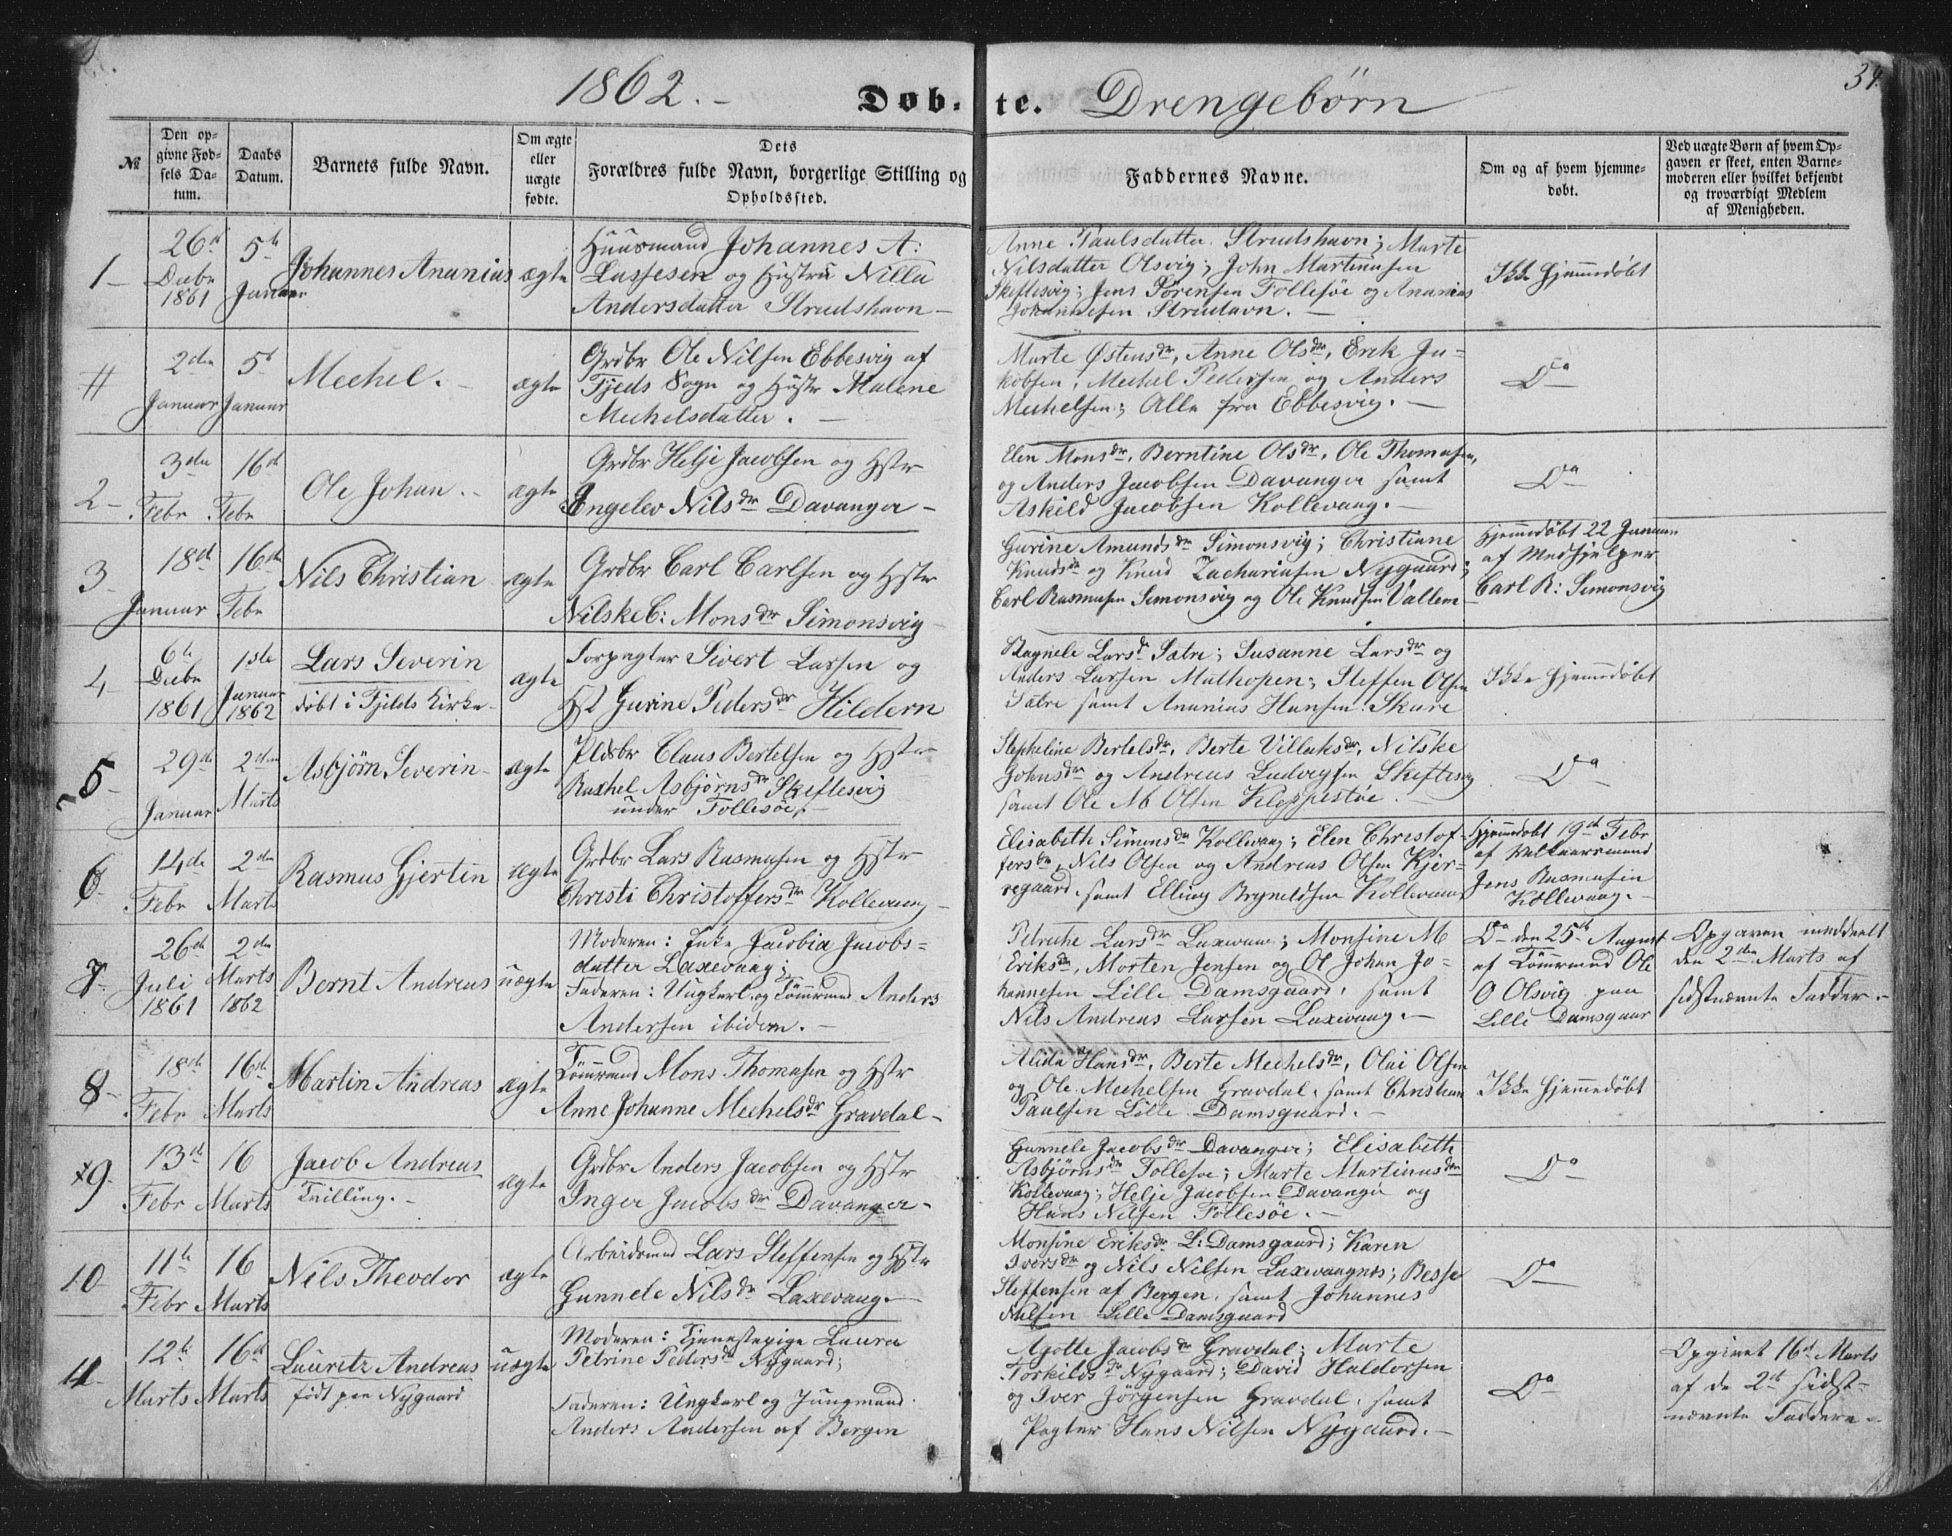 1862.- Døb- te. Drengebørn 34.
№
Den op-
givne Fød-
sels Da-
tum.
Daabs
Datum.
Barnets fulde Navn.
Om ægte
eller
uægte
fødte.
Dets
Forældres fulde Navn, borgerlige Stilling og
Opholdssted.
Faddernes Navne.
Om og af hvem hjemme-
døbt.
Ved uægte Børn af hvem Op-
gaven er skeet, enten Barne-
moderen eller hvilket bekjendt
og troværdigt Medlem
af Menigheden.
1
26d
Decbr
1861
5te
Januar
Johannes Ananias
ægte
Huusmand Johannes A:
Lassesen og Hustru Nilla
Andersdatter Strudshavn
Anne Paulsdatter Strudshavn; Marte
Nilsdatter Olsvig; John Martinusen
Skeftesvig; Jens Sörensen Follesöe og Ananias
Johannesen Strudavn.
Ikke Hjemmedøbt
#
2den
Januar
5t
Januar
Mechel.
ægte
Grdbr Ole Nilsen Ebbesvig af
Fjeds Sogn og Hustr Malene
Mechelsdatter.
Marte Østensdr, Anne Olsdr, Erik Ja-
kobsen, Mechel Pedersen og Anders
Mechelsen; Alle fra Ebbesvig.
Do
2
3den
Febr
16d
Febr
Ole Johan.
ægte
Grdbr Helje Jacobsen og Hstr
Engelev Nilsdr Davanger
Elen Monsdr, Berntine Olsdr, Ole Thomasen,
og Anders Jacobsen Davanger samt
Askild Jacobsen Kollevaag.
Do
3
18d
Januar
16de
Febr
Nils Christian
ægte
Grdbr Carl Carlsen og Hstr
Nilske C: Monsdr Simonsvig
Gurine Amundsdr Simonsvig; Christiane
Knudsdr og Knud Zachariasen Nygaard;
Carl Rasmusen Simonsvig og Ole Knudsen Vallem
Hjemmedøbt 22 Januar
af Medhjelper
Carl R: Simonsvig
4
6te
Decbr
1861
1ste
Januar
1862
Lars Severin
døbt i Fjelds Kirke
ægte
Forpagter Sivert Larsen og
Hst Gurine Pedersdr Hildern
Larsdr Sætre; Susanne Larsdr og
Anders Larsen Mulhopen; Steffen Olsen
Satre samt Ananias Hansen Skare
Ikke Hjemmedøbt
5
29de
Januar
2den
Marts
Asbjørn Severin
ægte
Pldsbr Claus Bertelsen og Hstr
Rachel Asbjørnsdr Skeftesvig
under Follesöe.
Stepheline Bertelsdr, Berte Villaksdr, Nilske
Johnsdr og Andreas Ludvigsen Skeftesvig
samt Ole M Olsen Kleppestöe.
Do
6
14de
Febr
2den
Marts
Rasmus Gjertin
ægte
Grdbr Lars Rasmusen og Hstr
Christi Christoffersdr Kollevaag
Elisabeth Simonsdr Kollevaag; Elen Christof-
fersdr, Nils Olsen og Andreas Olsen Kjer-
regaard samt Elling Bryneldsen Kollevaag
Hjemmedøbt 19de Febr
af
Jens Rasmusen
Kollevaag.
7
26de
Juli
1861
2den
Marts
1862
Bernt Andreas
uægte
Moderen: Enke Jacobia Jacobs-
datter Laxevaag;
Faderen: Ungkarl og Tömrmand Anders
Andersen ibidem.
Petrike Larsdr Laxevaag; Monsine M
Eriksdr, Morten Jensen og Ol Johan Jo-
hannesen Lille Damsgaard, samt
Nils Andreas Larsen Laxevaag.
Do den 25t August
af Tömrmand Ole
O Olsvig paa
Lille Damsgaar
Opgaven meddeelt
den 2den Marts af
sidstnævnte Fadder.
8
18de
Febr
16de
Marts
Martin Andreas
ægte
Tömrmand Mons Thomasen og Hstr
Anne Johanne Mechelsdr Gravdal
Alida Hansdr, Berte Mechelsdr, Olai Olsen
og Ole Mechelsen Gravdal, samt Christian
Paulsen Lille Damsgaard.
Ikke Hjemmedøbt
x9
13de
Febr
16
Marts
Jacob Andreas
Tvilling.
ægte
Grdbr Anders Jacobsen og Hstr
Inger Jacobsdr Davanger
Gunnele Jacobsdr Davanger; Elisabeth
Asbjørnsdr Follesöe; Marte Martinusdr
Kollevaag; Helje Jacobsen Davanger og
Hans Nilsen Follesöe.
Do
10
11te
Febr
16
Marts
Nils Theodor
ægte
Arbeidsmd Lars Steffensen og Hstr
Gunnele Nilsdr Laxevaag.
Monsine Eriksdr L: Damsgaard; Karen
Iversdr og Nils Nilsen Laxevaagnes; Besse
Steffensen af Bergen, samt Johannes
Nilsen Lille Damsgaard
Do
11
12te
Marts
16d
Marts
Lauritz Andreas
födt paa Nygaard
uægte
Moderen: Tjenestepige Laura
Petrine Pedersdr Nygaard;
Faderen: Ungkarl og Jungmand
Anders Andersen af Bergen
Agotte Jacobsdr Gravdal; Marte
Torkildsdr Nygaard; David Haldorsen
og Iver Jörgensen Gravdal, samt
Pagter Hans Nilsen Nygaard.
Do
Opgivet 16d Marts
af de 2d sidst-
nævnte Faddere